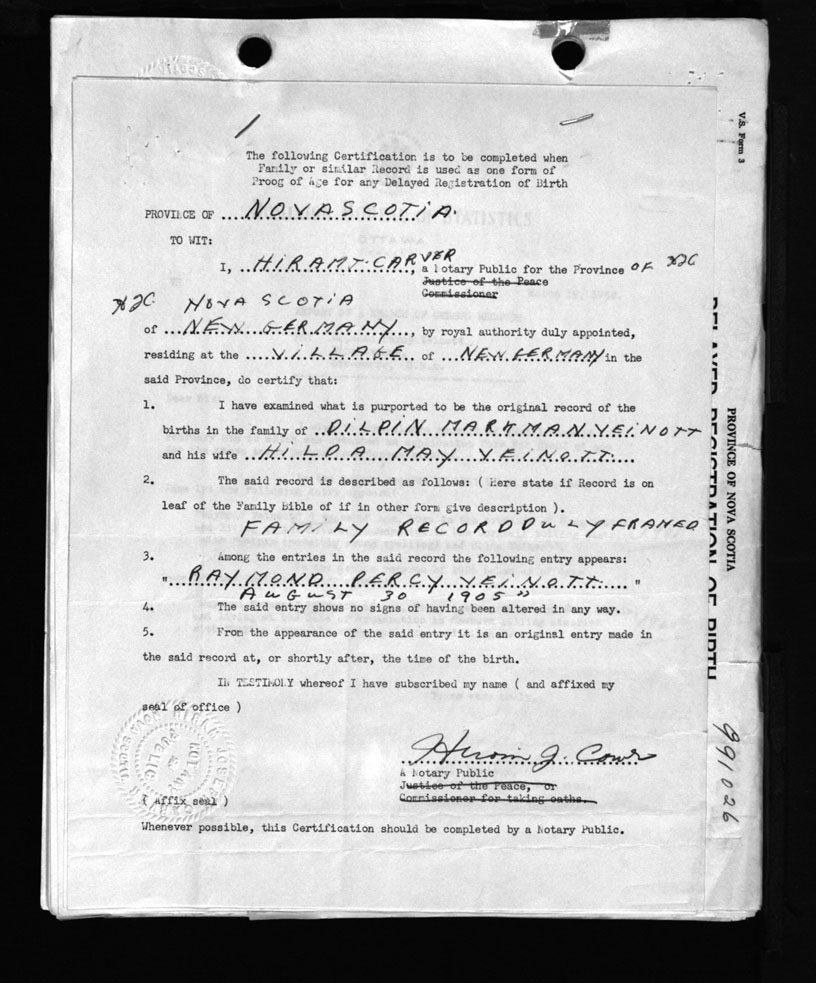 The following Certification is to be completed when
Family or similar Record is used as one form of
Proog of Age for any Delayed Registration of Birth
PROVINCE OF ....NOVA SCOTIA.
TO WIT:
I, ..HIRAM J. CARVER, a Notary Public for the Province OF HJC
Justice of the Peace
Commissioner
HJC NOVA SCOTIA
of ...NEW GERMANY..., by royal authority duly appointed,
residing at the ....VILLAGE.. of ...NEW GERMANY in the
said Province, do certify that:
1. I have examined what is purported to be the original record of the
births in the family of ..DILPIN MARKMAN VEINOTT
and his wife ..HILDA MAY VEINOTT....
2. The said record is described as follows: ( Here state if Record is on
leaf of the Family Bible of if in other form give description ).
FAMILY RECORD DULY FRAMED
3. Among the entries in the said record the following entry appears:
"...RAYMOND PERCY VEINOTT..... "
AUGUST 30 1905"
4. The said entry shows no signs of having been altered in any way.
5. From the appearance of the said entry it is an original entry made in
the said record at, or shortly after, the time of the birth.
IN TESTIMONY whereof I have subscribed my name ( and affixed my
seal of office )
HIRAM JOSEPH CARVER
NOTARY PUBLIC
NOVA SCOTIA
Hiram J. Carver
A Notary Public
Justice of the Peace, or
Commissioner for taking oaths.
( affix seal )
Whenever possible, this Certification should be completed by a Notary Public.
V.S. Form 3
PROVINCE OF NOVA SCOTIA
DELAYED REGISTRATION OF BIRTH
991026